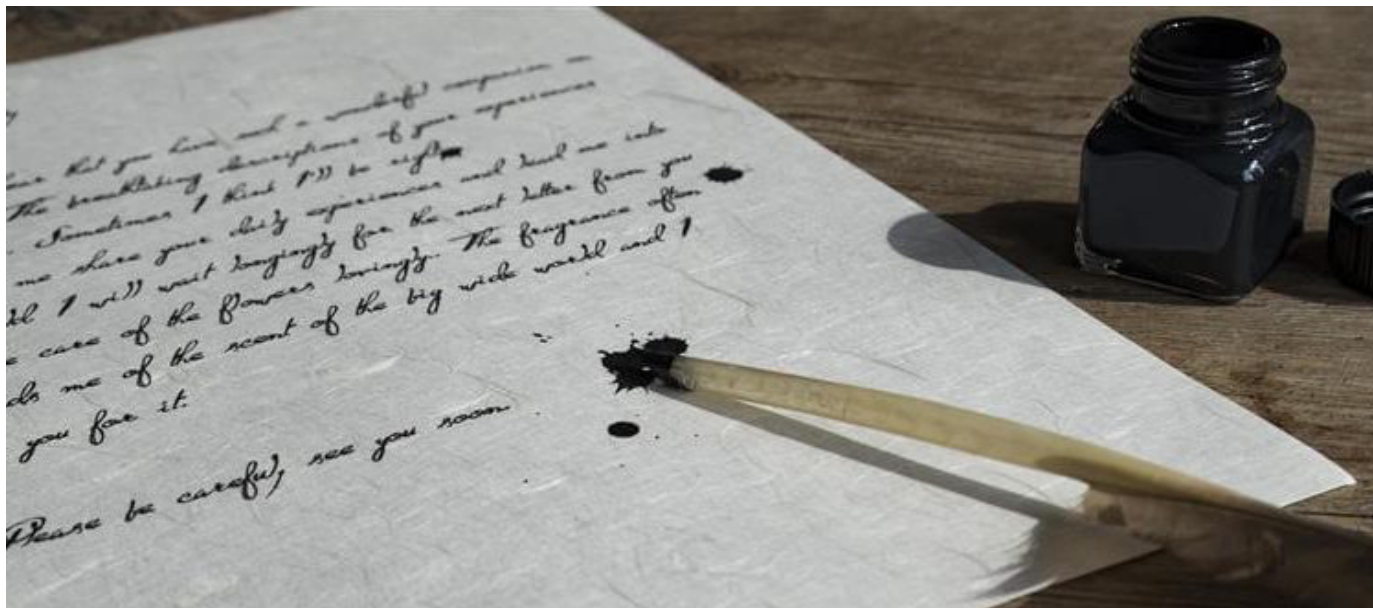 that you have such a wonderful companion on
The breathtaking descriptions of your experiences
Sometimes I think I'll be right
me share your daily experiences and lead me into
I will wait longingly for the next letter from you
care of the flowers lovingly. The fragrance often
me of the scent of the big wide world and I
you for it.
Please be careful, see you soon